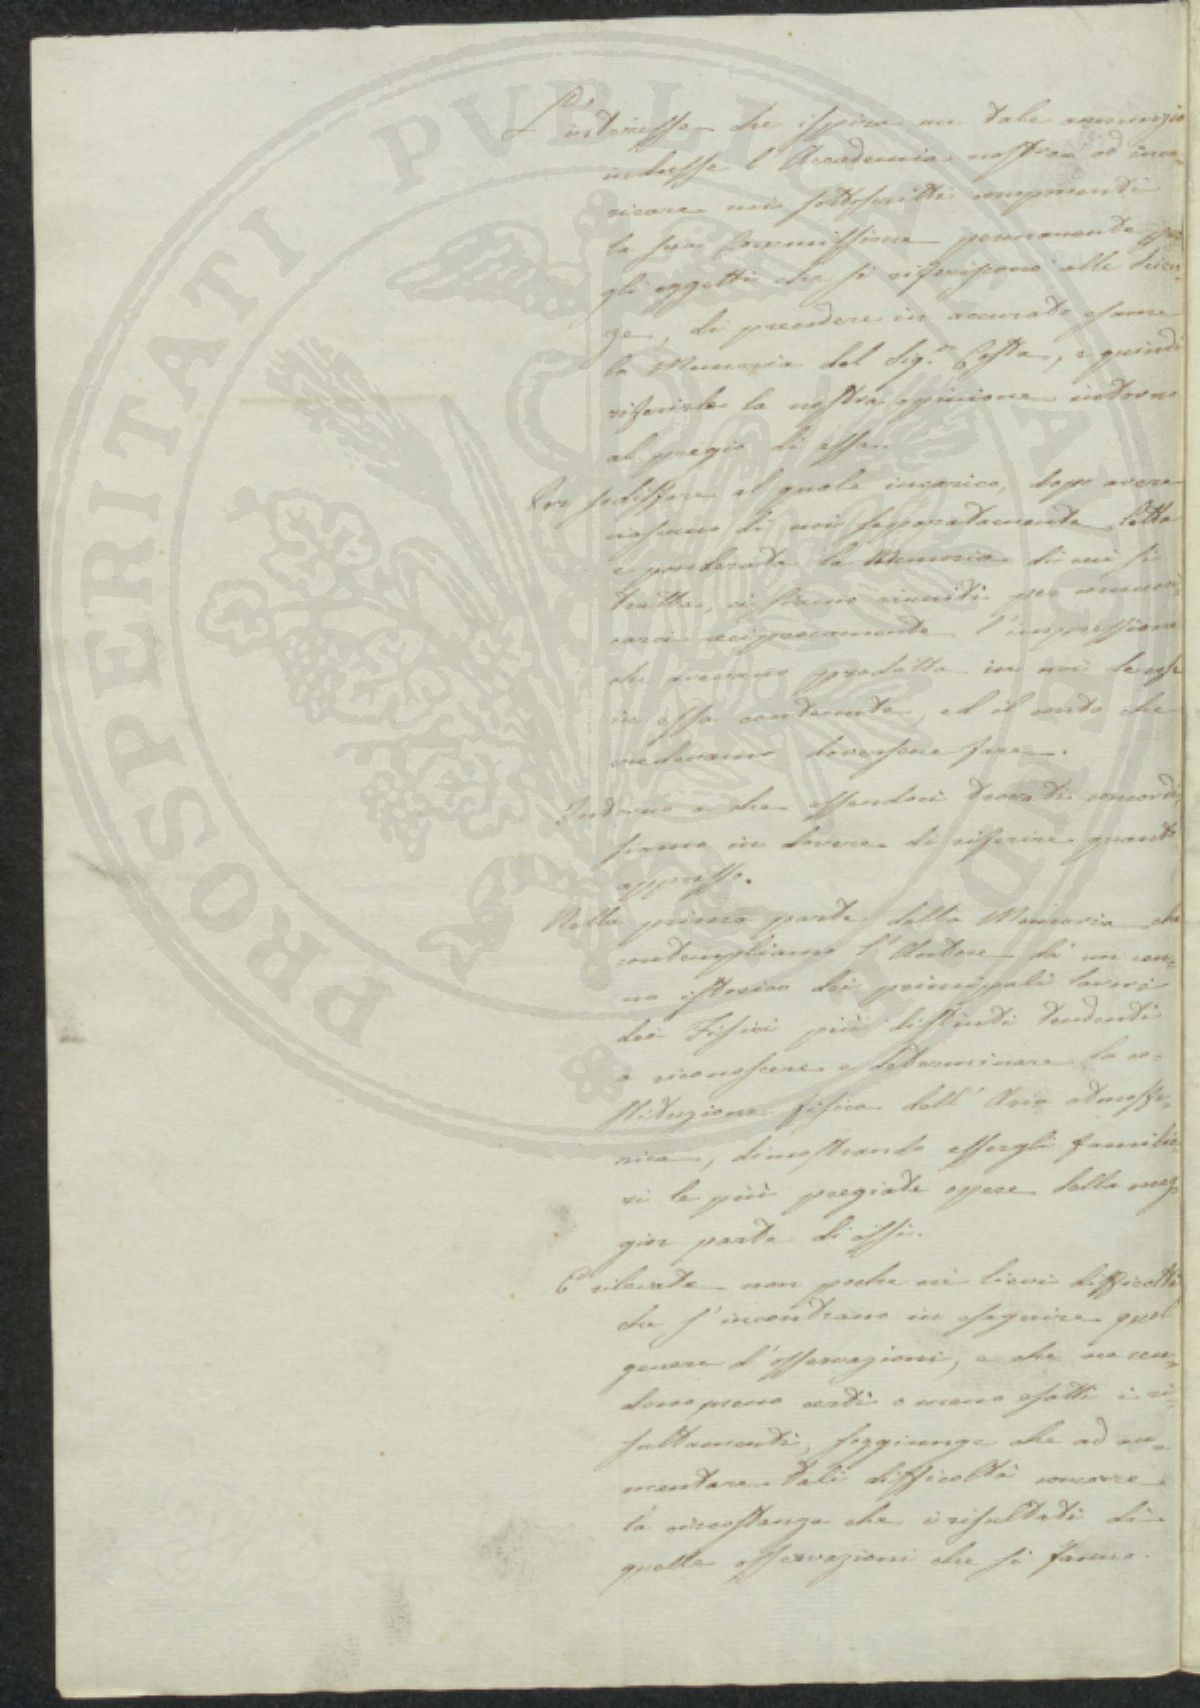 L'interesse che ispira un tale annunzio
indusse l'Accademia nostra ad inca-
ricare noi sottoscritti componenti
la sua Commissione permanente per
gli oggetti che si riferiscono alle Scien-
ze, di prendere in accurato esame
la Memoria del Sig.r Cesta, e quindi
riferirle la nostra opinione intorno
al pregio di essa.
Per sodisfare al quale incarico, dopo avere
ciascuno di noi separatamente letta
e ponderata la Memoria di cui si
tratta, ci siamo riuniti per comuni-
carci reciprocamente l'impressione
che avevano prodotta in noi le cose
in essa contenute, ed il conto che
credevamo doversene fare.
Intorno a che essendoci trovati concordi,
siamo in dovere di riferire quanto
appresso.
Nella prima parte della Memoria che
contempliamo l'Autore dà un cen-
no istorico dei principali lavori
dei Fisici più distinti tendenti
a riconoscere e determinare la co-
stituzione fisica dell'Aria atmosfe-
rica, dimostrando essergli familia-
ri le più pregiate opere della mag-
gior parte di essi.
E rilevate non poche nè lievi difficoltà
che s'incontrano in eseguire quel
genere d'osservazioni, e che ne ren-
dono meno certi o meno esatti i ri-
sultamenti, soggiunge che ad au-
mentare tali difficoltà concorre
la circostanza che i risultati di
quelle osservazioni che si fanno
PROSPERITATI PVBLICAE AVGENDAE